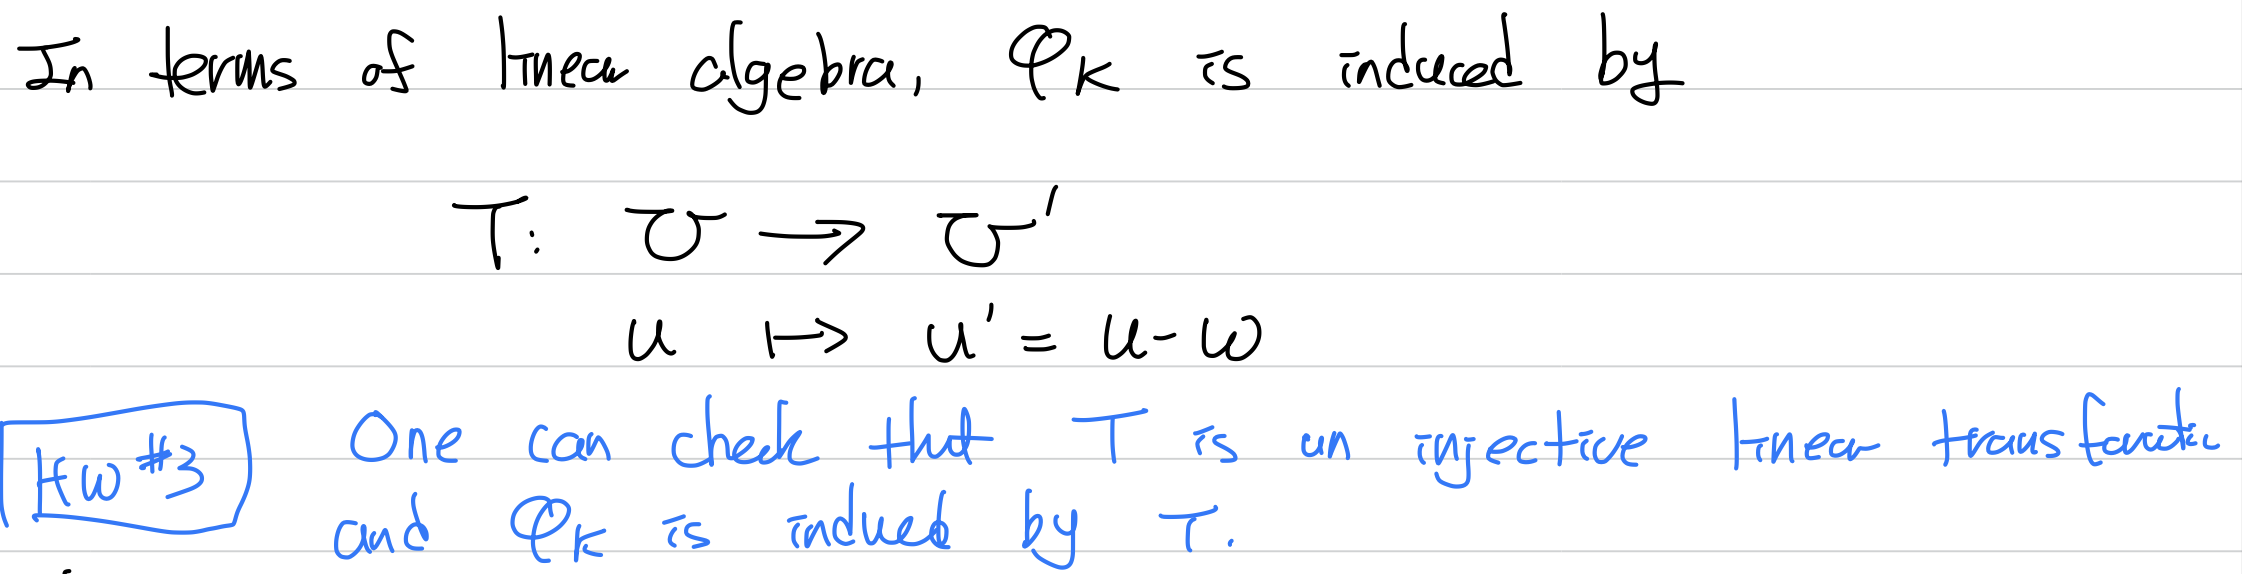 In terms of linear algebra, φ_K is induced by
T: U → U'
u ↦ u' = u - w
HW #3 One can check that T is an injective linear transformation
and φ_K is induced by T.